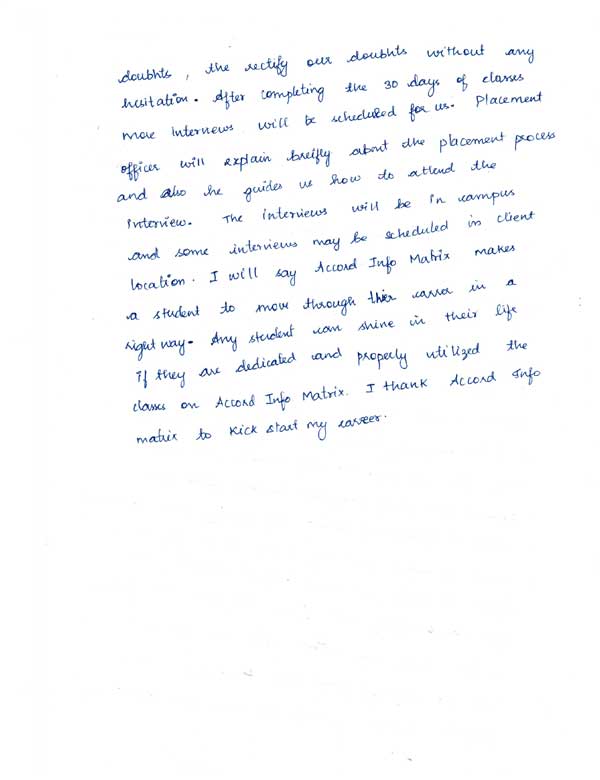 doubhts, the rectify our doubhts without any
hesitation. After completing the 30 days of classes
more Interviews will be scheduled for us. Placement
officer will explain breifly about the placement process
and also he guides us how to attend the
interview. The interviews will be in campus
and some interviews may be scheduled in client
location. I will say Accord Info Matrix makes
a student to move through their in a
right way. Any student can shine in their life
if they are dedicated and properly utilized the
classes on Accord Info Matrix. I thank Accord Info
matrix to Kick start my career.